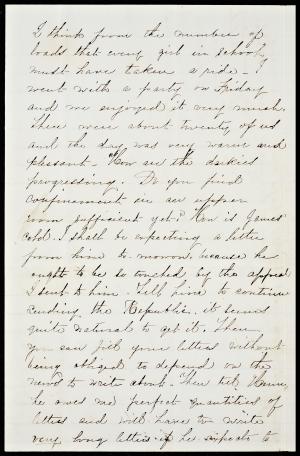 I think from the number of
loads that every girl in school
must have taken a ride - I
went with a party on Friday
and we enjoyed it very much.
There were about twenty of us
and the day was very warm and
pleasant - How are the
progressing. Do you find
confinement in an upper
room sufficient yet? How is James'
cold. I shall be expecting a letter
from him to-morrow, because he
ought to be so touched by the appeal
I sent to him. Tell him to continue
sending the Republic. it seems
quite natural to get it. Then
you can fill your letters without
being obliged to depend on the
news to write about. Then tell
he owes me perfect quantities of
letters and will have to write
very long letters if he expects to